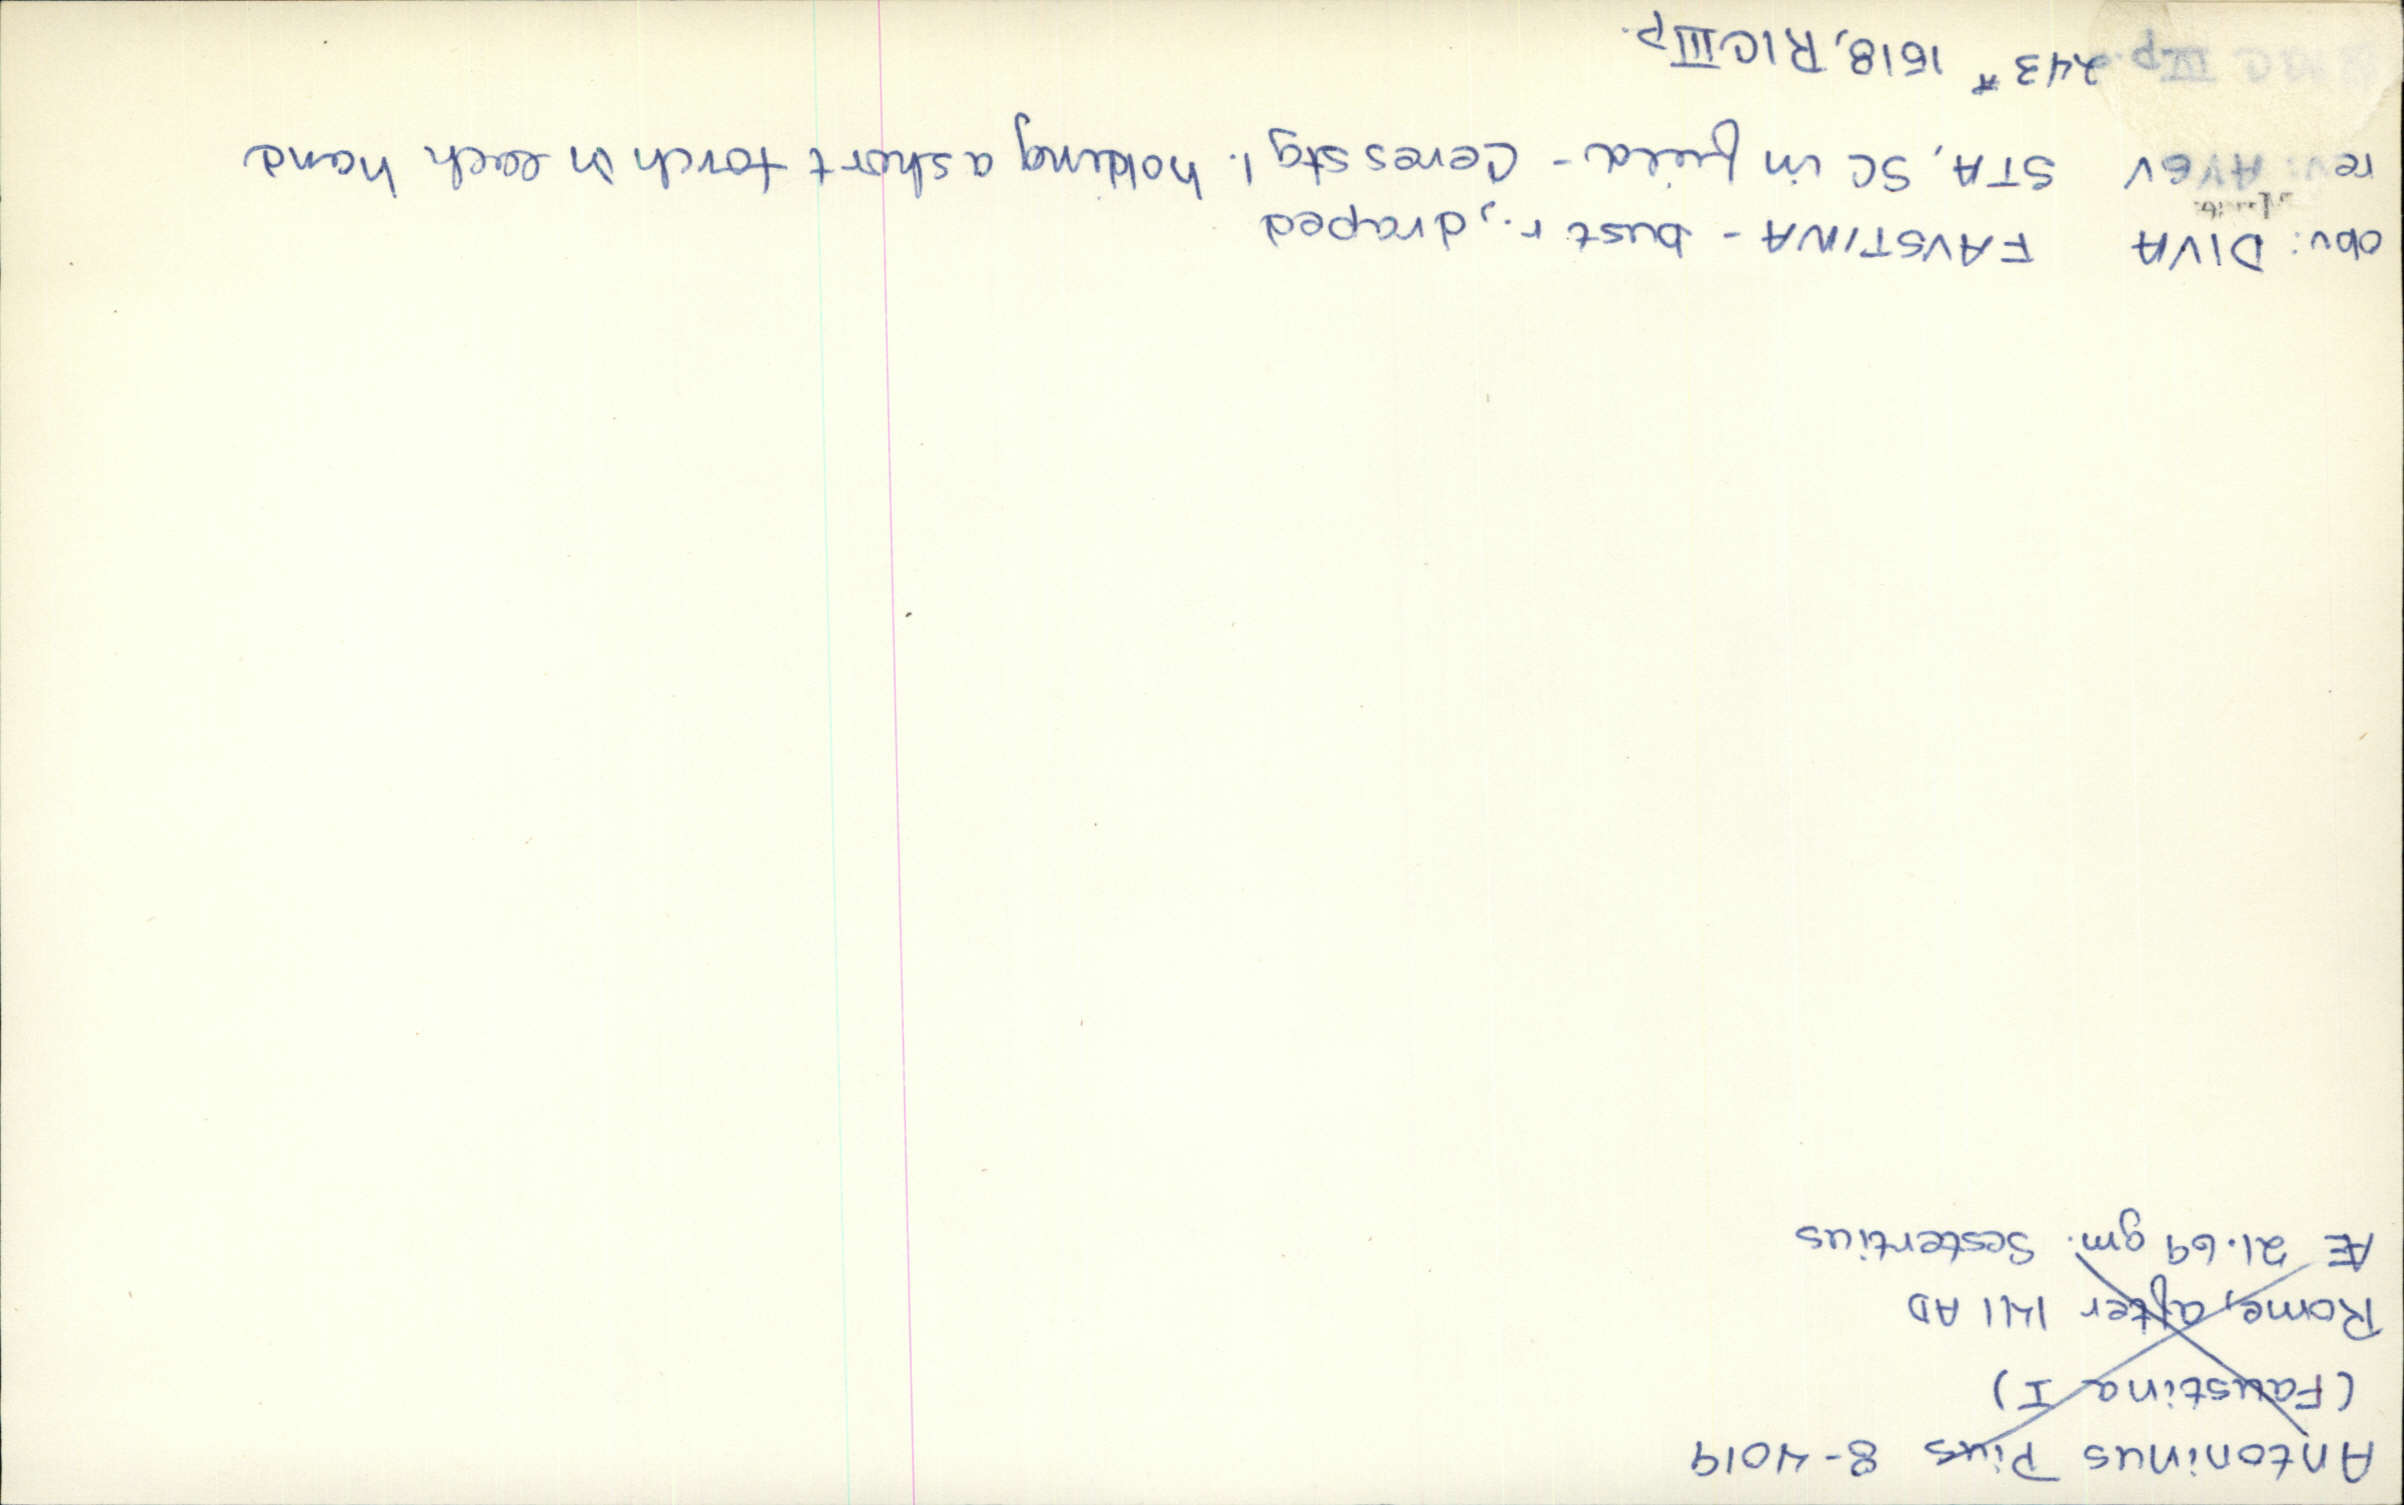 Antoninus Pius 8-4019
(Faustina I)
Rome, after 141 AD
Æ 21.69 gm. Sestertius
obv: DIVA FAVSTINA - bust r., draped
rev: AVGV STA, SC in field - Ceres stg l. holding a short torch in each hand
IV p. 243 * 1518, RIC III p.